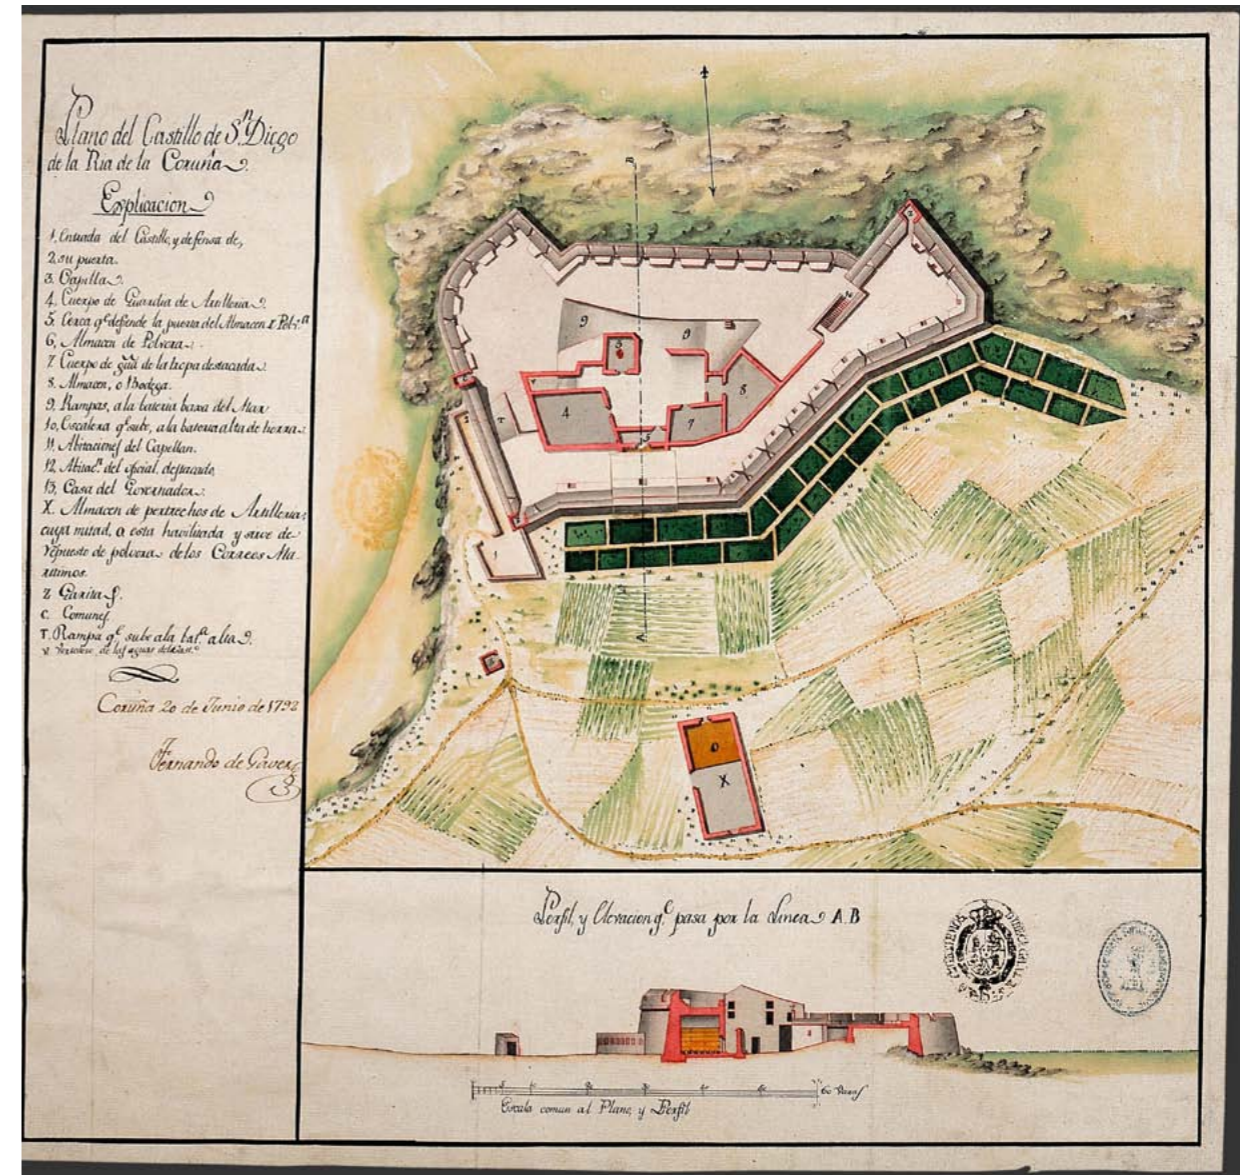 Plano del Castillo de Sⁿ Diego
de la Ria de la Coruña.
Explicacion
1, Entrada del Castillo, y defensa de,
2. su puerta.
3. Capilla.
4, Cuerpo de Guardia de Artilleria.
5. Cerca qᵉ defiende la puerta del Almacen
6, Almacen de Polvora.
7 Cuerpo de de la tropa destacada.
8. Almacen, o Bodega.
9. Rampas, a la bateria baxa del Mar
10, Escalera qᵉ sube, a la bateria alta de tierra.
11, Abitaciones del Capellan.
12, Abitacⁿ. del oficial, destacado,
13, Casa del Governador.
X. Almacen de pertrechos de Artilleria,
cuya mitad, o esta havilitada y sirve de
repuesto de polvora de los Correos Ma-
ritimos.
Z Garitas.
C. Comunes.
T. Rampa qᵉ sube a la batᵃ alta.
V. de las aguas
Coruña 20 de Junio de 1792
Fernando de Gaver
B
A
1
3
4
5
7
8
9
T
O
X
Perfil, y Elevacion qᵉ pasa por la Linea A B
60 Varas
Escala comun al Plano, y Perfil